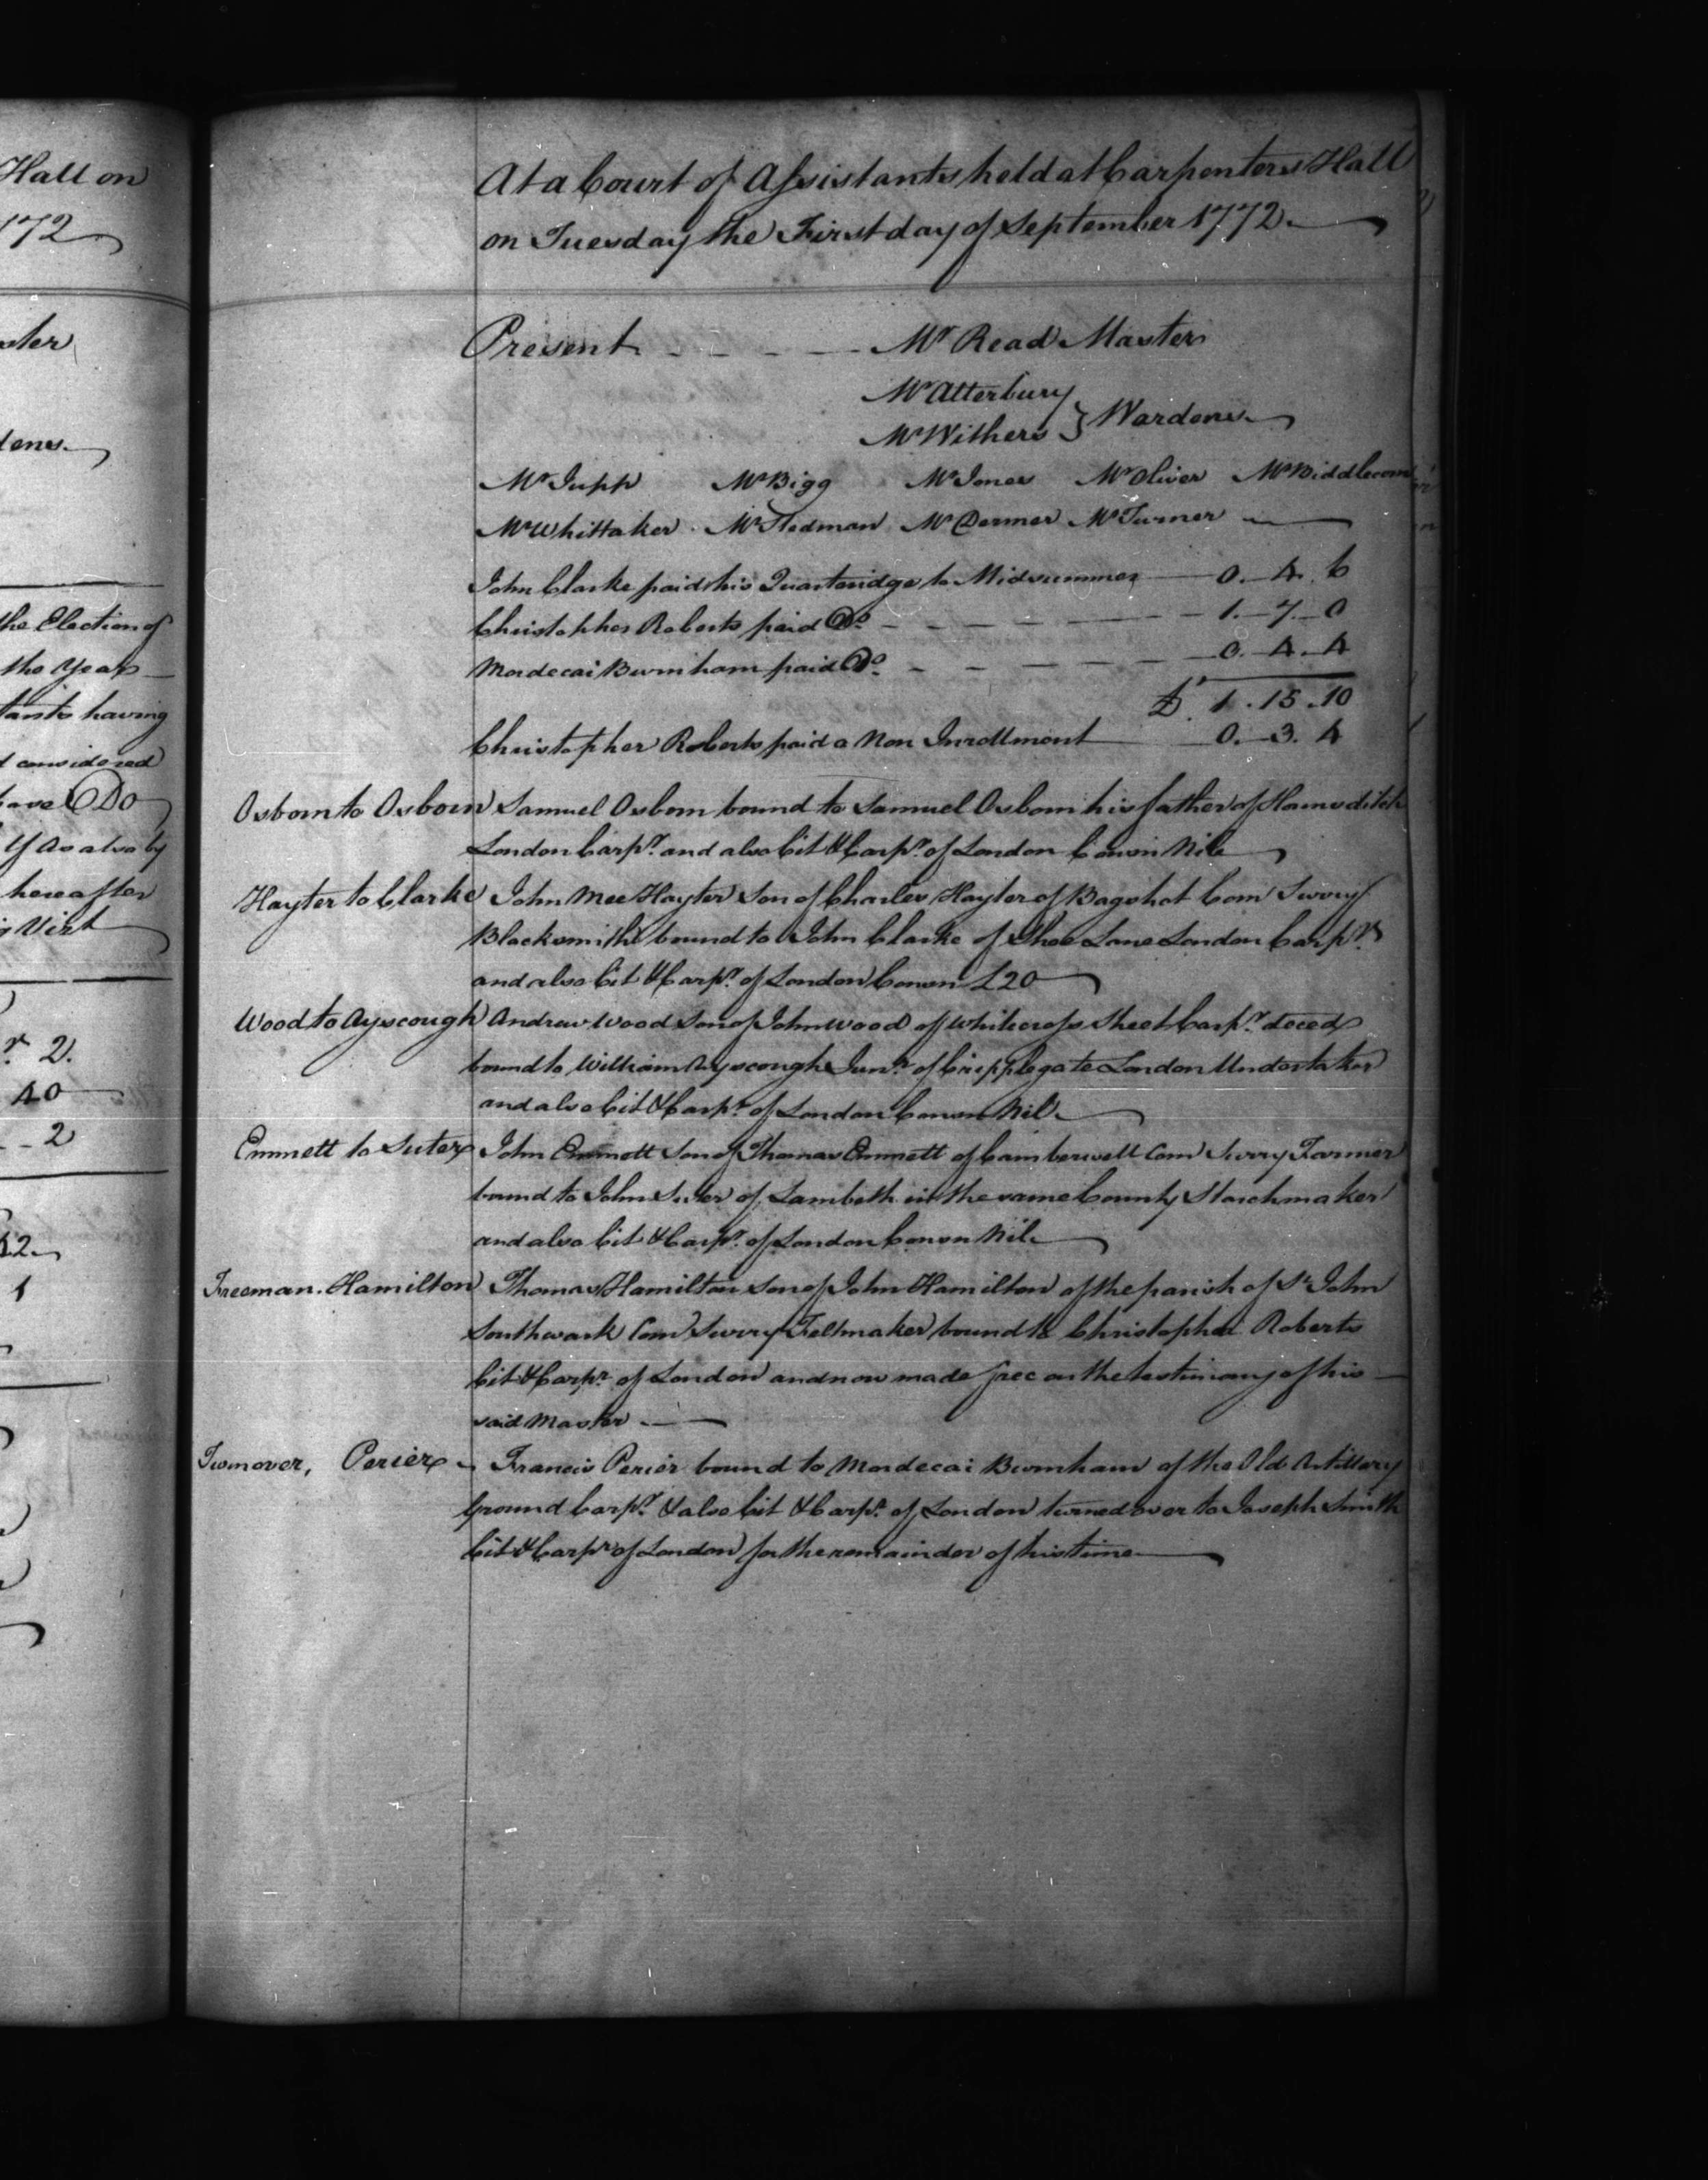 Hall on
1772
ster
dens.
the Election of
the Year
tants having
d considered
have Do
lf As also by
hereafter
Visit
r. 2.
40
2
1
At a Court of Assistants held at Carpenters Hall
on Tuesday the First day of September 1772.
Present - - - - Mr Read Master
Mr Atterbury
Mr Withers } Wardens
Mr Jupp Mr Bigg Mr Jones Mr Oliver Mr Biddlecom
Mr Whittaker Mr Stedman Mr Dermer Mr Turner
John Clarke paid his Quarteridge to Midsummer 0. 4. 6
Christopher Roberts paid Do. - - - - 1. 7. 0
Mordecai Burnham paid Do. - - - - 0. 4. 4
£. 1. 15. 10
Christopher Roberts paid a Non Inrollment 0. 3. 4
Osborn to Osborn Samuel Osborn bound to Samuel Osborn his father of Hounsditch
London Carpr. and also Cit & Carpr. of London Conson Nil
Hayter to Clarke John Mee Hayter Son of Charles Hayter of Bagshot Com Surry
Blacksmith bound to John Clarke of Shoe Lane London Carpr.
and also Cit & Carpr. of London Conson £20
Wood to Ayscough Andrew Wood Son of John Wood of Whitecross Street Carpr. deced
bound to William Ayscough Junr. of Cripplegate London Undertaker
and also Cit & Carpr. of London Conson Nil.
Emmett to Suter John Emmett Son of Thomas Emmett of Camberwell Com Surry Farmer
bound to John Suter of Lambeth in the same County Starchmaker
and also Cit & Carpr. of London Conson Nil.
Freeman. Hamilton Thomas Hamilton Son of John Hamilton of the parish of St. John
Southwark Com Surry Feltmaker bound to Christopher Roberts
Cit & Carpr. of London and now made free on the testimony of his
said Master
Turnover, Perier Francis Perier bound to Mordecai Burnham of the Old Artillery
Ground Carpr. & also Cit & Carpr. of London turned over to Joseph Smith
Cit & Carpr of London for the remainder of his time